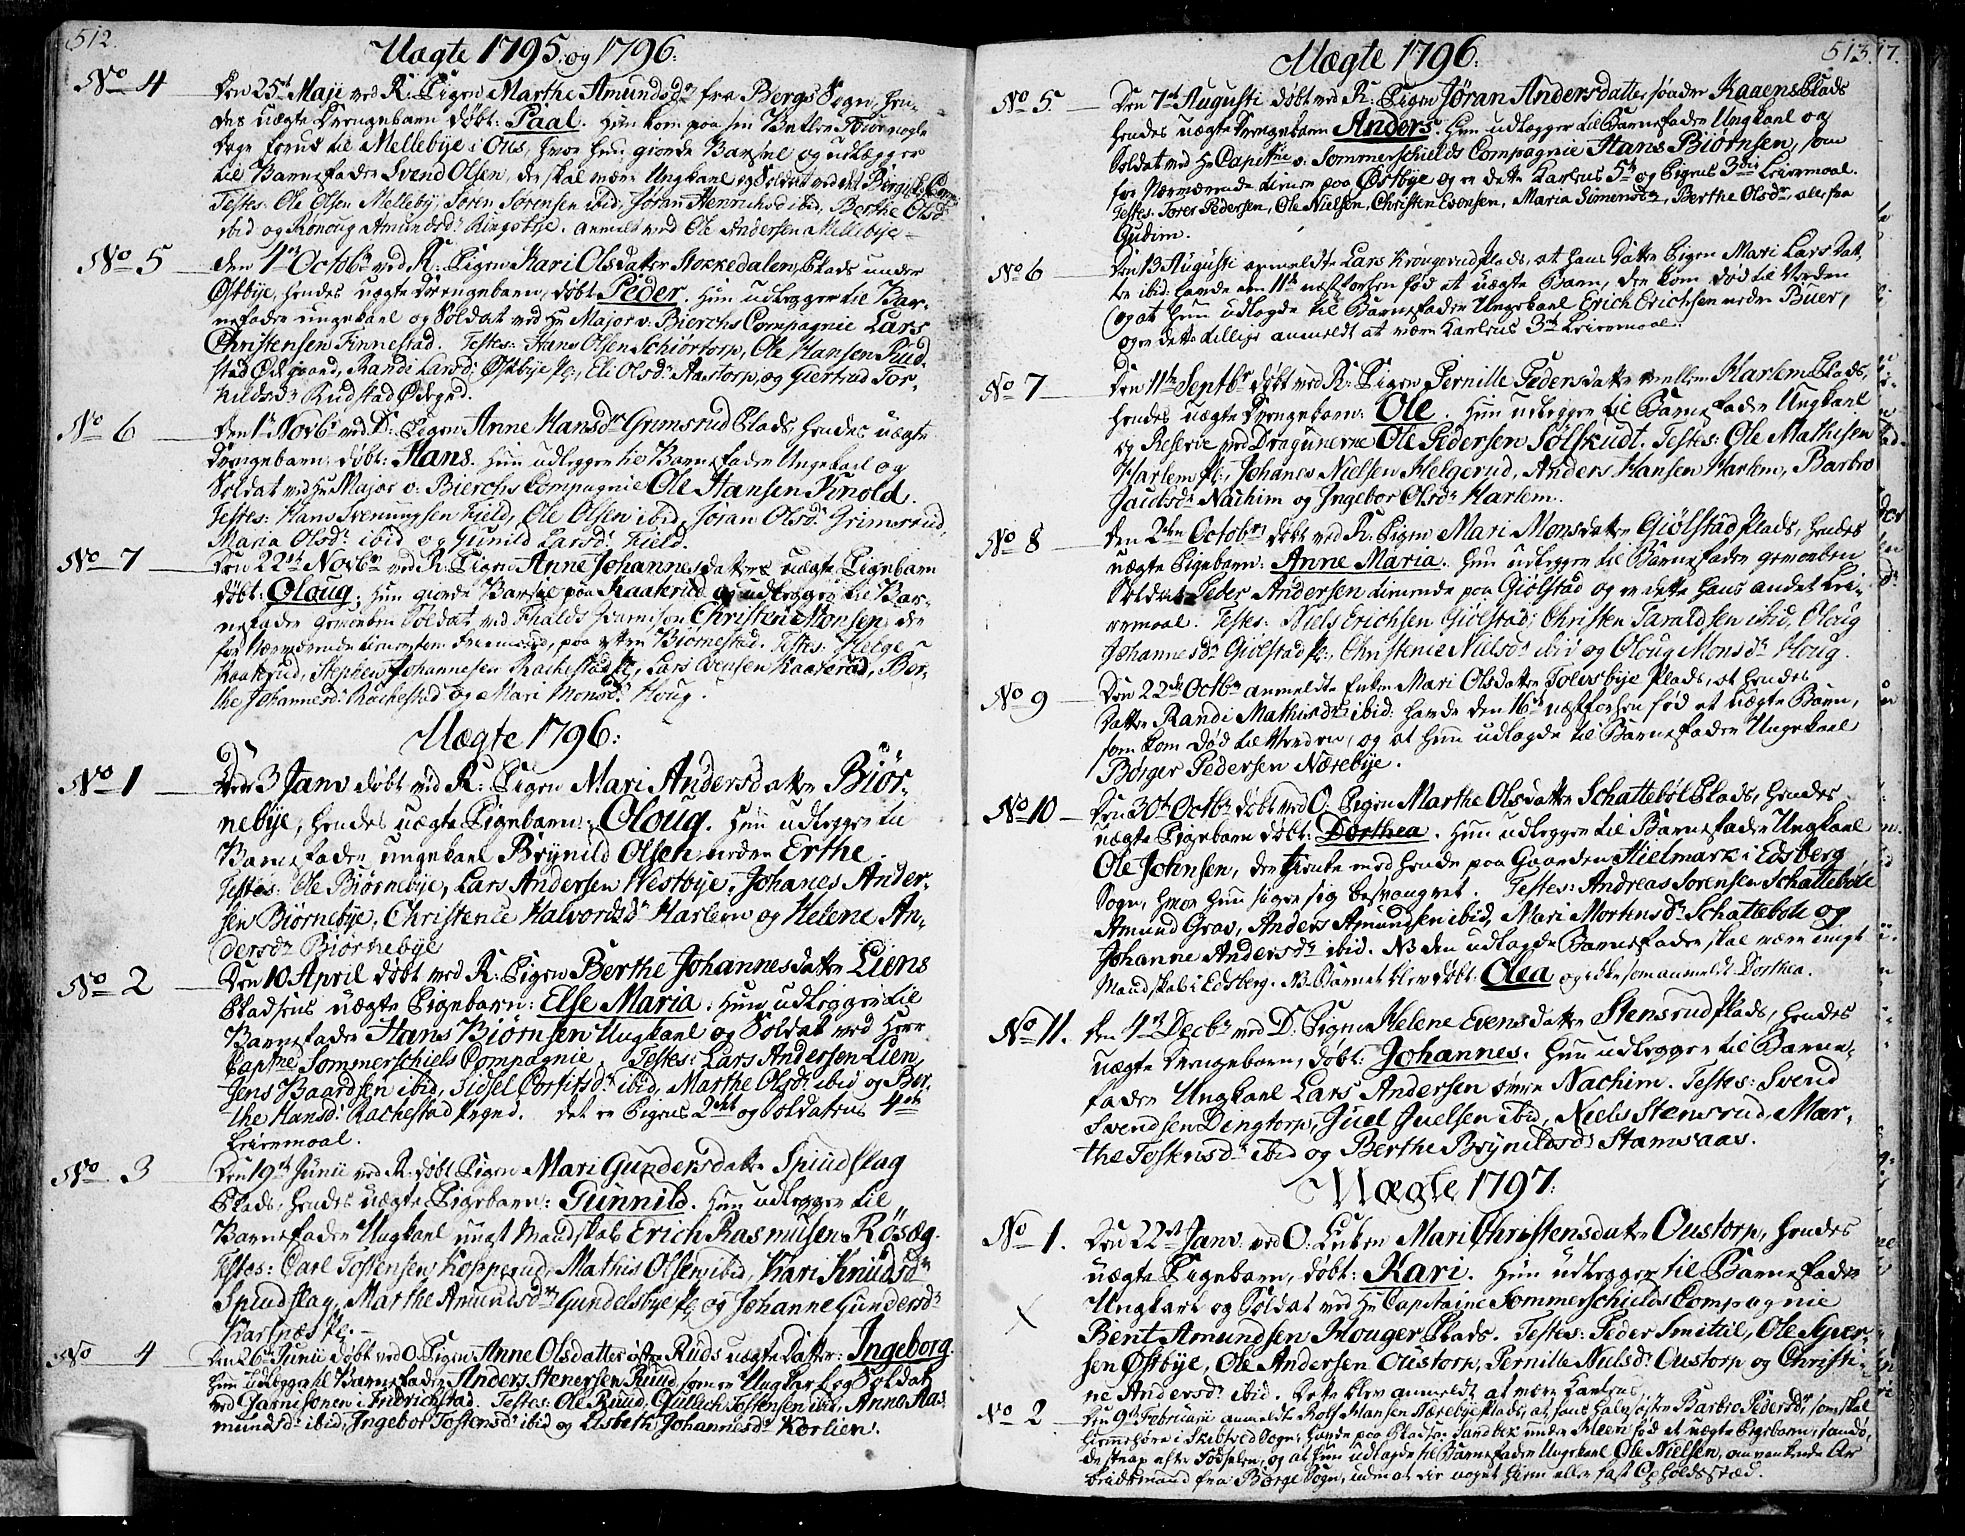 512.
Uægte 1795. og 1796:
No 4 Den 25de Maji ved R: Pigen Marthe Amundsdr fra Bergs Sogn, hen-
des uægte Drengebarn døbt: Paal. Hun kom paa sin
Dage forud til Mellebye i Ous, hvor hun giorde Barsel og udlægger
til Barnefader Svend Olsen, der skal være Ungkarl og Soldat ved det
Testes: Ole Olsen Melleby, Sören Sörensen ibid, Jöran Henrichsd ibid, Berthe Olsd:
ibid og Rönoug Amundsd: Ringstye. anmeldt ved Ole Andersen Mellebye.
No 5 den 4de Octobr ved R: Pigen Kari Olsdatter Stokkedalen, Plads under
Østbye, hendes uægte Drengebarn, døbt Peder. Hun udlegger til Bar-
nefader ungekarl og Soldat ved Hr Major v: Bierchs Compagnie Lars
Christensen Finnestad. Testes: Hans Olsen Schiörtorp, Ole Hansen Rud-
stad Ødegaard, Randi Larsd: Østbye Pl:, Eli Olsd: Aastorp, og Giertrud Tor-
kildsd: Rudstad Ødegrd.
No 6 Den 1te Novbr ved D: Pigen Anne Hansdr Grimsrud Plads, hendes uægte
Drengebarn: døbt: Hans. Hun udlegger til Barnefader Ungekarl og
Soldat ved Hr Major v: Bierchs Compagnie Ole Hansen Kinold.
Testes: Hans Svenungsen Field, Ole Olsen ibid, Jöran Olsd: Grimsrud,
Maria Olsd: ibid og Gunild Larsd: Field.
No 7 Den 22de Novbr ved R: Pigen Anne Johannesdatters uægte Pigebarn
døbt: Oloug. Hun giorde Barsel paa Kaaterud og udlegger til Bar-
nefader Soldat ved Garnison Christen Monsen, der
for Nærværende paa östre Biørnestad. Testes: Helge
Kaaterud, Stephen Johannesen Rachestad Pl:, Lars Evensen Kaaterud, Ber-
the Johannesd: Rachestad og Mari Monsd: Houg.
Uægte 1796:
No 1 Den 3 Janv døbt ved R: Pigen Mari Andersdatter Biör-
nebye, hendes uægte Pigebarn: Oloug. Hun udlegger til
Barnefader ungekarl Brynild Olsen nedre Erthe.
Testes: Ole Biørnebye, Lars Andersen Westbye, Johanes Ander-
sen Biørnebye, Christence Halvorsdr Harlem og Helene An-
dersdr Biørnebye
No 2 Den 10 April døbt ved R: Pigen Berthe Johannesdatter Liens
Pladsens uægte Pigebarn: Else Maria. Hun udlegger til
Barnefader Hans Biörnsen Ungkarl og Soldat ved Herr
Captne Sommerschiels Compagnie. Testes: Lars Andersen Lien,
Jens Baardsen ibid, Sidsel ibid, Marthe Olsd: ibid og Ber-
the Hansd: Rachestad det er Pigens 2det og Soldatens 4de
Leiermaal.
No 3 Den 19de Junii ved R: døbt Pigen Mari Gundersdatter Spiudslag
Plads, hendes uægte Pigebarn: Gunnild. Hun udlegger til
Barnefader Ungkarl ungt Mandskab Erich Rasmusen Røsæg.
Testes: Carl Tostensen Kopperud, Mathis Olsen ibid, Kari Knudsdr
Spiudslag, Marthe Amundsdr Gundelsbye Pl: og Johanne Gundersdr
Karlsnæs Pl:
No 4 Den 26de Junii døbt ved O: Pigen Anne Olsdatter östre Ruds uægte Datter: Ingeborg.
Hun udlegger til Barnefader Anders Stenersen Ruud, som er Ungkarl og Soldat
ved Garnisonen i Fridrichstad. Testes: Ole Ruud, Gulach Tostensen ibid, Anne Aas-
mundsd: ibid, Ingebor Tostensd: ibid og Lisbeth Johannisdr Korlien.
Uægte 1796:
513.
17.
No 5 Den 7de Augusti døbt ved R: Pigen Jöran Andersdatter söndre Kaaens Plads
hendes uægte Drengebarn Anders. Hun udlegger til Barnefader Ungkarl og
Soldat ved Hr Capitne v: Sommerschields Compagnie Hans Biörnsen, som
for Nærværende tiener paa Østbye og er dette Karlens 5te og Pigens 3die Leiermaal.
Testes: Torer Pedersen, Ole Nielsen, Christen Evensen, Maria Simensdr, Berthe Olsdr, alle fra
Gudim.
No 6 Den 13 Augusti anmeldte Lars Krongerud Plads, at hans Datter Pigen Mari Lars Dat-
ter ibid: havde den 11te næstforhen fød et uægte Barn, der kom død til Verden
og at hun udlagde til Barnefader Ungekarl Erich Erichsen nedre Buer,
og er dette tillige anmeldt at være Karlens 3de Leiermaal.
No 7 Den 11te Septbr døbt ved R: Pigen Pernille Pedersdatter mellem Harlem Plads,
hendes uægte Drengebarn: Ole. Hun udlegger til Barnefader Ungkarl
og Reserve ved Dragunerne Ole Pedersen Sölfkudt. Testes: Ole Mathisen
Harlem Pl:, Johanes Nielsen Helgerud, Anders Hansen Harlem, Barbro
Gautsdr Nachim og Ingebor Olsdr Harlem.
No 8 den 2den Octobr døbt ved R: Pigen Mari Monsdatter Giølstad Plads, hendes
uægte Pigebarn: Anne Maria. Hun udlegger til Barnefader
Soldat Peder Andersen tienende paa Giølstad og er dette hans andet Lei-
ermaal. Testes: Niels Erichsen Giølstad, Christen Taraldsen ibid, Oloug
Johannesdr Giølstad Pl:, Christence Nielsdr ibid og Oloug Monsdr Houg.
No 9 Den 22de Octbr anmeldte Enken Mari Olsdatter Tolersbye Plads, at hendes
Datter Randi Mathisdr ibid: havde den 16de næstforhen fød et uægte Barn,
som kom død til Verden, og at hun udlagde til Barnefader Ungekarl
Børger Pedersen Nærebye.
No 10 Den 30te Octbr døbt ved O: Pigen Marthe Olsdatter Schattebøl Plads, hendes
uægte Pigebarn døbt: Dorthea. Hun udlegger til Barnefader Ungkarl
Ole Johnsen, der tiente med hende paa Gaarden Hielmark i Edsberg
Sogn, hvor hun siger sig besvangret. Testes: Andreas Sorensen Schattebøle
Amund Grav, Anders Amundsen ibid, Mari Mortensdr Schattebøle og
Johanne Andersdr ibid. NB den udlagde Barnefader skal være ungt
Mandskab i Edsberg. NB Barnet blev døbt: Olea og ikke som anmeldt Dorthea.
No 11. den 4de Decbr ved D: Pigen Helene Evensdatter Stensrud Plads, hendes
uægte Drengebarn, døbt: Johannes. Hun udlegger til Barne-
fader Ungkarl Lars Andersen övre Nachim. Testes: Svend
Svendsen Dingtorp, Juel Juelsen ibid, Niels Stensrud, Mar-
the Tostensdr ibid og Berthe Brynildsdr Stamsaas.
Uægte 1797:
No 1. Den 22de Janv. ved O: Enken Mari Christensdatter Oustorp, hendes
uægte Pigebarn, døbt: Kari. Hun udlegger til Barnefader
Ungkarl og Soldat ved Hr Capitaine Sommerschields Compagnie
Bent Amundsen Houger Plads. Testes: Peder Smittil, Ole
sen Østbye, Ole Andersen Oustorp, Pernille Nielsdr Oustorp og Christi-
ne Andersdr ibid. Dette blev anmeldt at være Karlens
No 2 Den 9de Februarii anmeldte Rolf Hansen Nærebye Plads, at hans Halvsöster Barbro Pedersdr, som skal
hiemmehöre i Skibtved Sogn, havde paa Pladsen Sandbek under Kleen fød et uægte Pigebarn, som dø-
de strax efter Fødselen, og at hun udlagde til Barnefader Ungekarl Ole Nielsen, omvankende Ar-
beidsmand fra Borge Sogn, uden at vie noget Hiem eller fast Opholdssted.